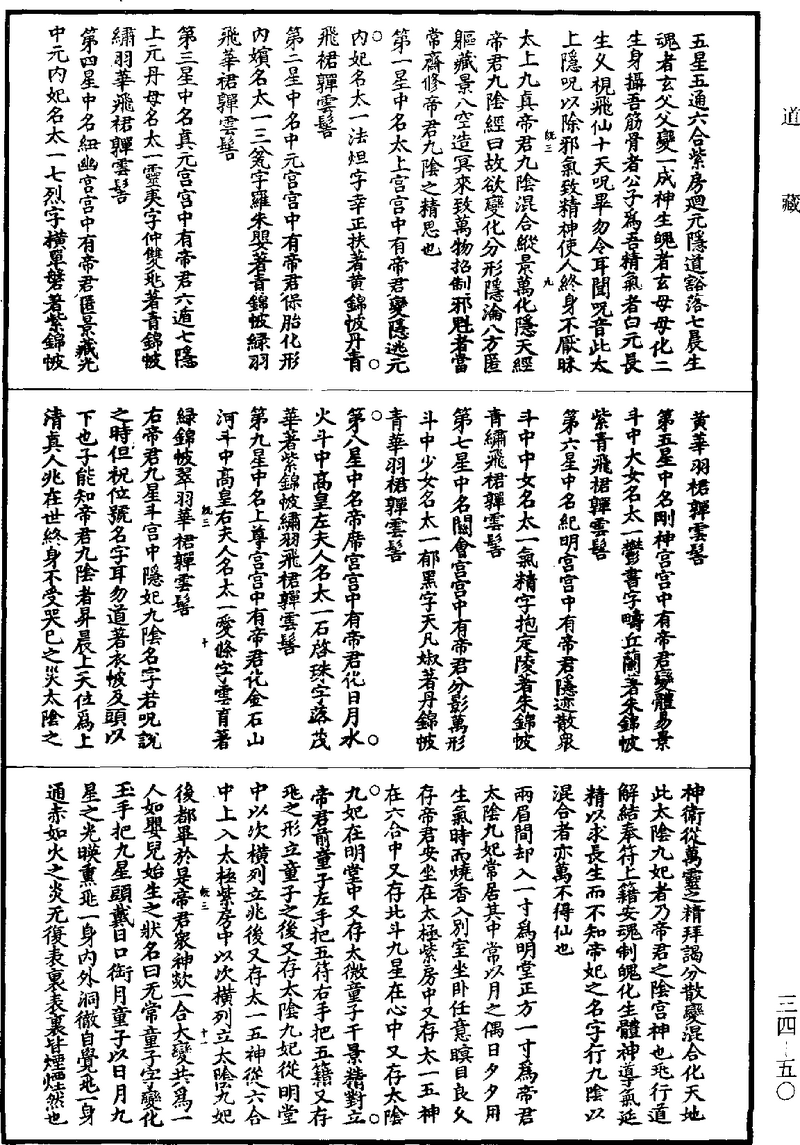 道藏
五星五通六合紫房迴元隱道豁落七晨生
魂者玄父父變一成神生魄者玄母母化二
生身攝吾筋骨者公子爲吾精氣者白元長
生久視飛仙十天呪畢勿令耳聞呪音此太
上隱呪以除邪氣致精神使人終身不厭昧
既三 九
太上九真帝君九陰混合縱景萬化隱天經
帝君九陰經曰故欲變化分形隱淪八方匿
軀藏景八空造冥來致萬物招制邪魁者當
常齋修帝君九陰之精思也
第一星中名太上宮宮中有帝君變隱逃元
內妃名太一法烜字幸正扶著黃錦帔丹青
飛裙嚲雲髻
第二星中名中元宮宮中有帝君保胎化形
內嬪名太一三筊字羅朱嬰著青錦帔綠羽
飛華裙嚲雲髻
第三星中名真元宮宮中有帝君六遁七隱
上元丹母名太一靈夷字仲雙兆著青錦帔
繡羽華飛裙嚲雲髻
第四星中名紐幽宮宮中有帝君匿景藏光
中元內妃名太一七烈字橫單槃著紫錦帔
黃華羽裙嚲雲髻
第五星中名剛神宮宮中有帝君變體易景
斗中大女名太一鬱書字疇丘蘭著朱錦帔
紫青飛裙嚲雲髻
第六星中名紀明宮宮中有帝君隱迹散衆
斗中中女名太一氣精字抱定陵著朱錦帔
青繡飛裙嚲雲髻
第七星中名關會宮宮中有帝君分影萬形
斗中少女名太一郁黑字天凡婌著丹錦帔
青華羽裙嚲雲髻
第八星中名帝席宮宮中有帝君化日月水
火斗中高皇左夫人名太一石啓珠字落茂
華著紫錦帔繡羽飛裙嚲雲髻
第九星中名上尊宮宮中有帝君化金石山
河斗中高皇右夫人名太一愛條字雲育著
既三 十
綠錦帔翠羽華裙嚲雲髻
右帝君九星斗宮中隱妃九陰名字若呪說
之時但祝位號名字耳勿道著衣帔及頭以
下也子能知帝君九陰者昇晨上天位爲上
清真人兆在世終身不受哭巳之災太陰之
神衛從萬靈之精拜謁分散變混合化天地
此太陰九妃者乃帝君之陰宮神也兆行道
解結奉符上籍安魂制魄化生體神導氣延
精以求長生而不知帝妃之名字行九陰以
混合者亦萬不得仙也
兩眉間却入一寸爲明堂正方一寸爲帝君
太陰九妃常居其中常以月之偶日夕夕用
生氣時而燒香入別室坐卧任意瞑目良久
存帝君安坐在太極紫房中又存太一五神
在六合中又存北斗九星在心中又存太陰
九妃在明堂中又存太微童子千景精對立
帝君前童子左手把五符右手把五籍又存
兆之形立童子之後又存太陰九妃從明堂
中以次橫列立兆後又存太一五神從六合
中上入太極紫房中以次橫列立太陰九妃
既三 十一
後都畢於是帝君衆神欻一合大變共爲一
人如嬰兒始生之狀名曰无常童子字變化
玉手把九星頭戴日口銜月童子以日月九
星之光暎熏兆一身內外洞徹自覺兆一身
通赤如火之炎无復表裏表裏皆煙煙然也
三四-五〇